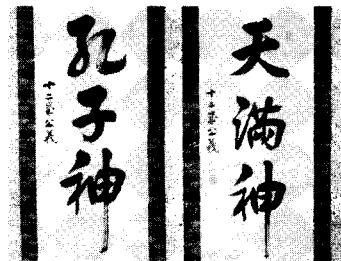 天満神
十二歳公義
孔子神
十二歳公義